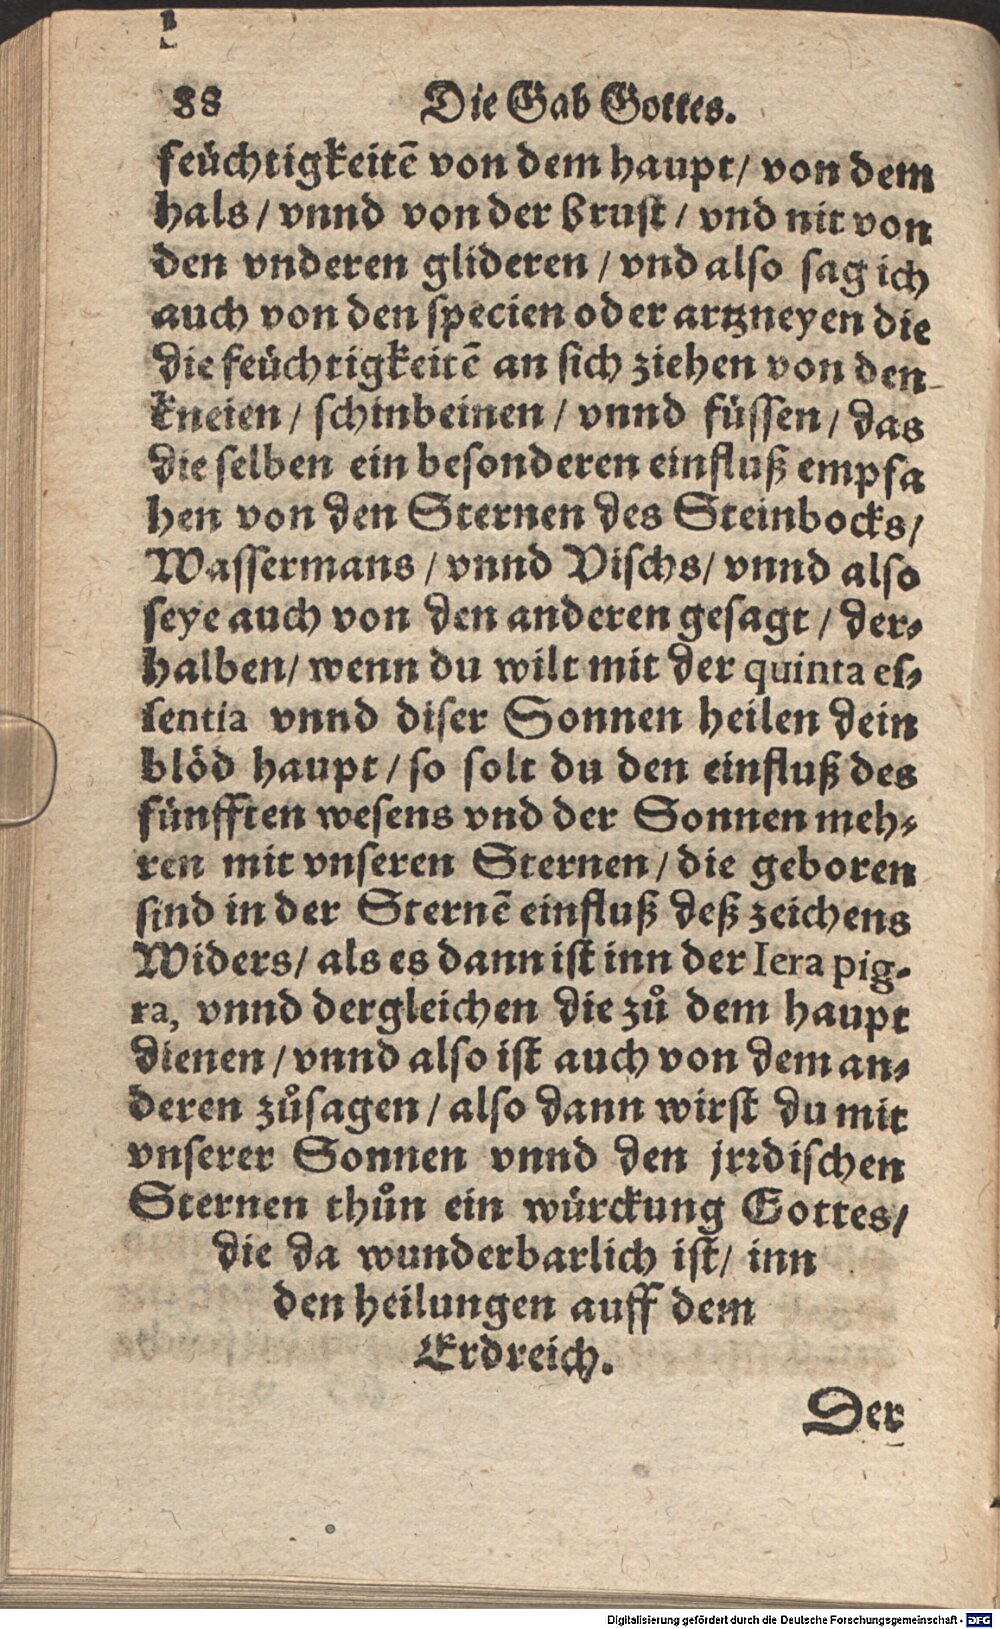 88 Die Gab Gottes.
feüchtigkeitē von dem haupt/ von dem
hals / vnnd von der brust / vnd nit von
den vnderen glideren / vnd also sag ich
auch von den specien oder artzneyen die
die feüchtigkeitē an sich ziehen von den
kneien / schinbeinen / vnnd füssen / das
die selben ein besonderen einfluß empfa
hen von den Sternen des Steinbocks/
Wassermans / vnnd Vischs/ vnnd also
seye auch von den anderen gesagt / der⸗
halben/ wenn du wilt mit der quinta es⸗
sentia vnnd diser Sonnen heilen dein
blöd haupt / so solt du den einfluß des
fünfften wesens vnd der Sonnen meh⸗
ren mit vnseren Sternen / die geboren
sind in der Sternē einfluß deß zeichens
Widers/ als es dann ist inn der Iera pig-
ra, vnnd dergleichen die zů dem haupt
dienen / vnnd also ist auch von dem an⸗
deren zůsagen / also dann wirst du mit
vnserer Sonnen vnnd den jrꝛdischen
Sternen thůn ein würckung Gottes/
die da wunderbarlich ist/ inn
den heilungen auff dem
Erdreich.
Der
Digitalisierung gefördert durch die Deutsche Forschungsgemeinschaft - DFG